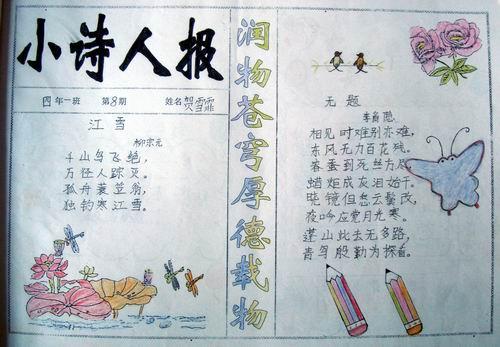 小诗人报
四年一班 第8期 姓名 贺雪霏
江雪
柳宗元
千山鸟飞绝,
万径人踪灭。
孤舟蓑笠翁,
独钓寒江雪。
润物苍穹厚德载物
无题
李商隐
相见时难别亦难,
东风无力百花残。
春蚕到死丝方尽
蜡炬成灰泪始干。
晓镜但愁云鬓改,
夜吟应觉月光寒。
蓬山此去无多路,
青鸟殷勤为探看。